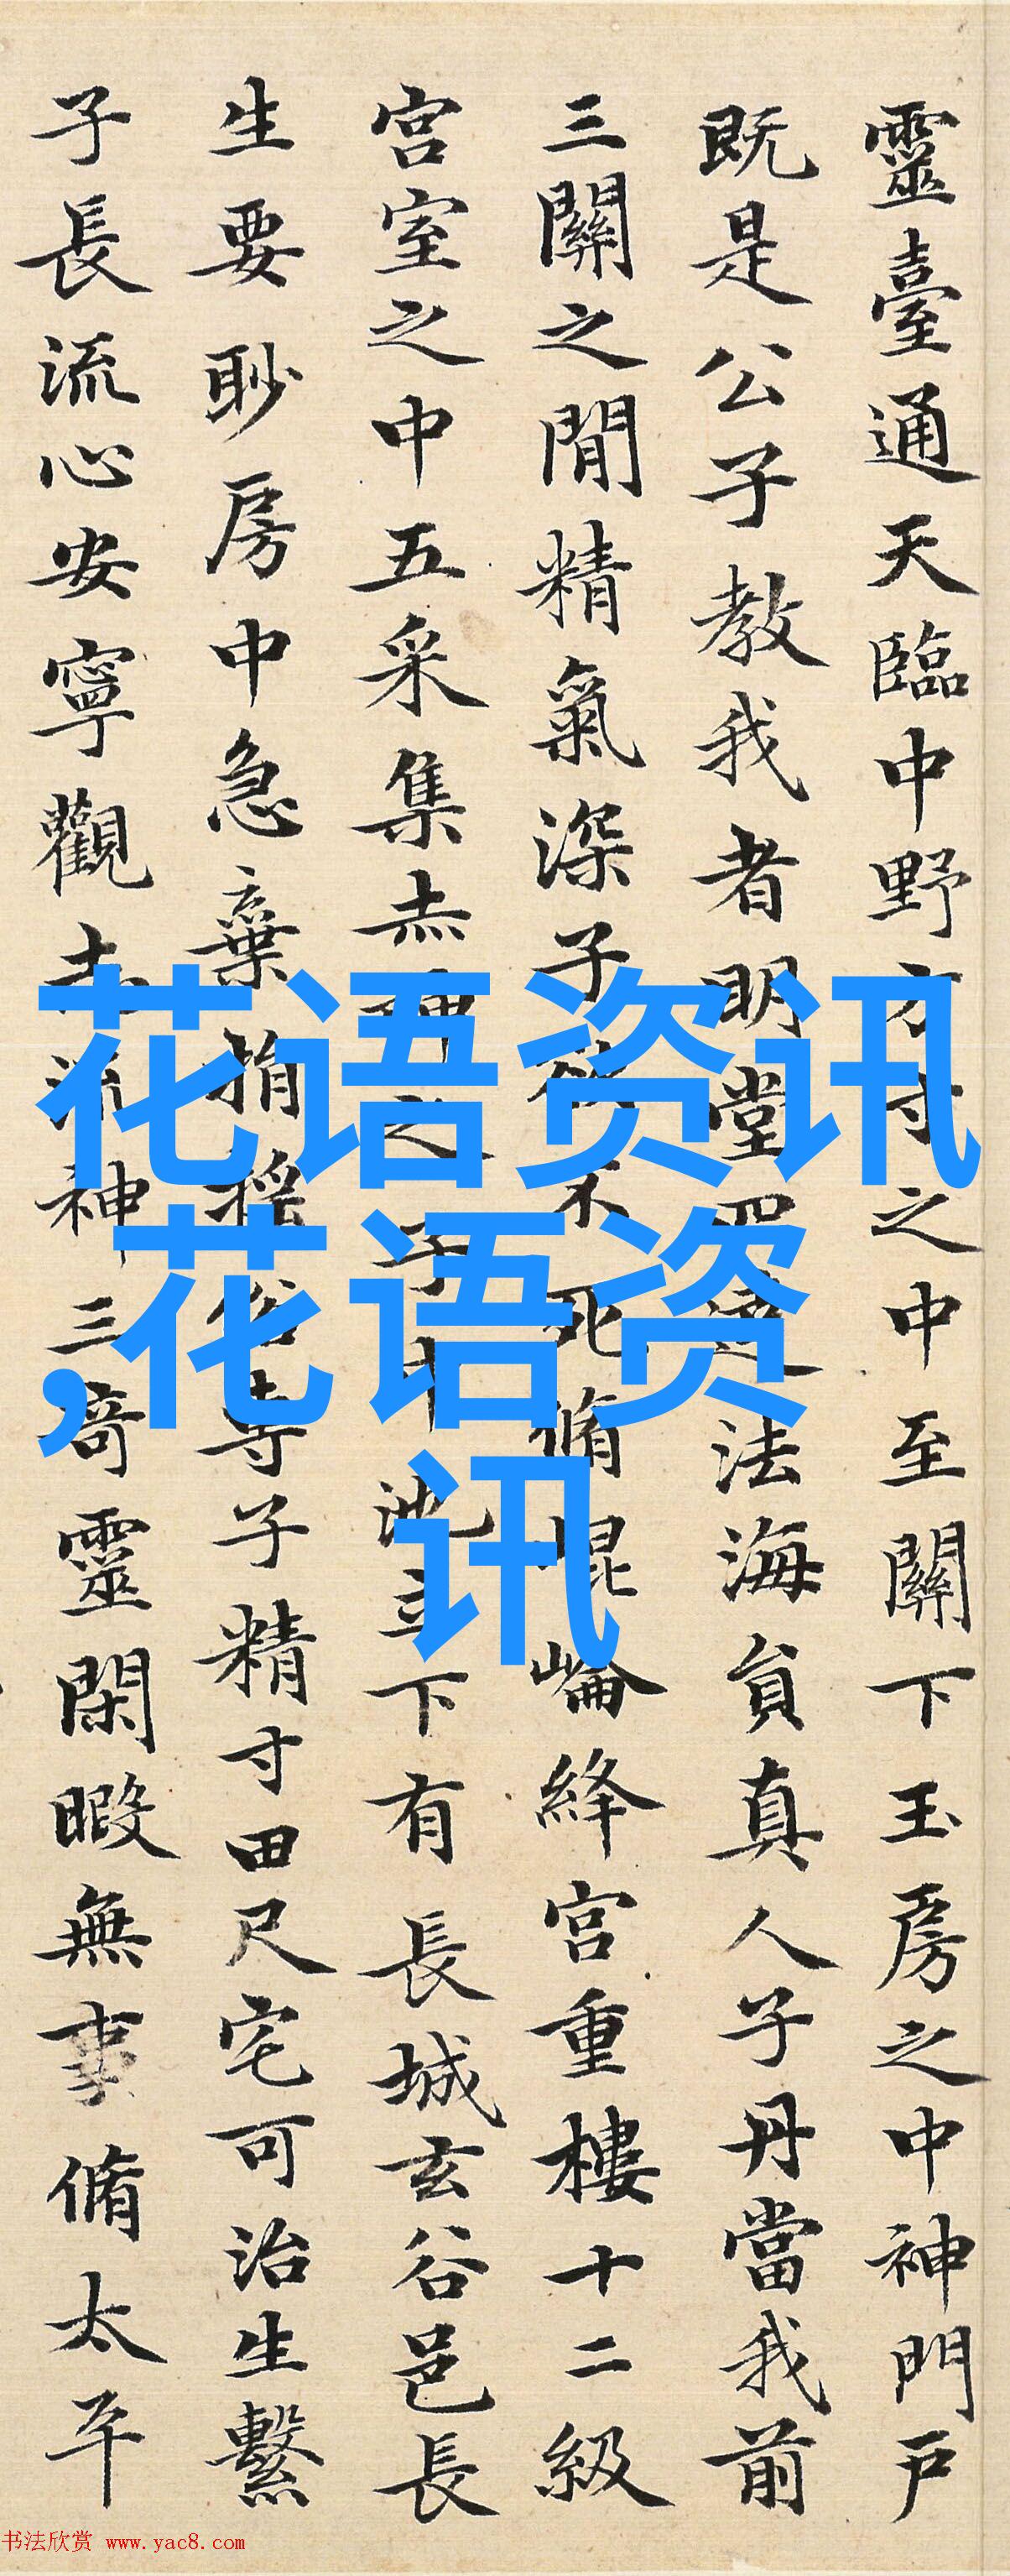 靈臺通天臨中野方寸之中至關下玉房之中神門戶
既是公子教我者明堂四達法海員真人子丹當我前
三關之閒精氣深子欲不死脩崐崘絳宮重樓十二級
宮室之中五采集赤神之子中池立下有長城玄谷邑長
生要眇房中急棄捐搖俗專子精寸田尺宅可治生繫
子長流心安寧觀志流神三奇靈閑暇無事脩太平
花语资讯
,花语资
讯
书法欣赏 www.yac8.com